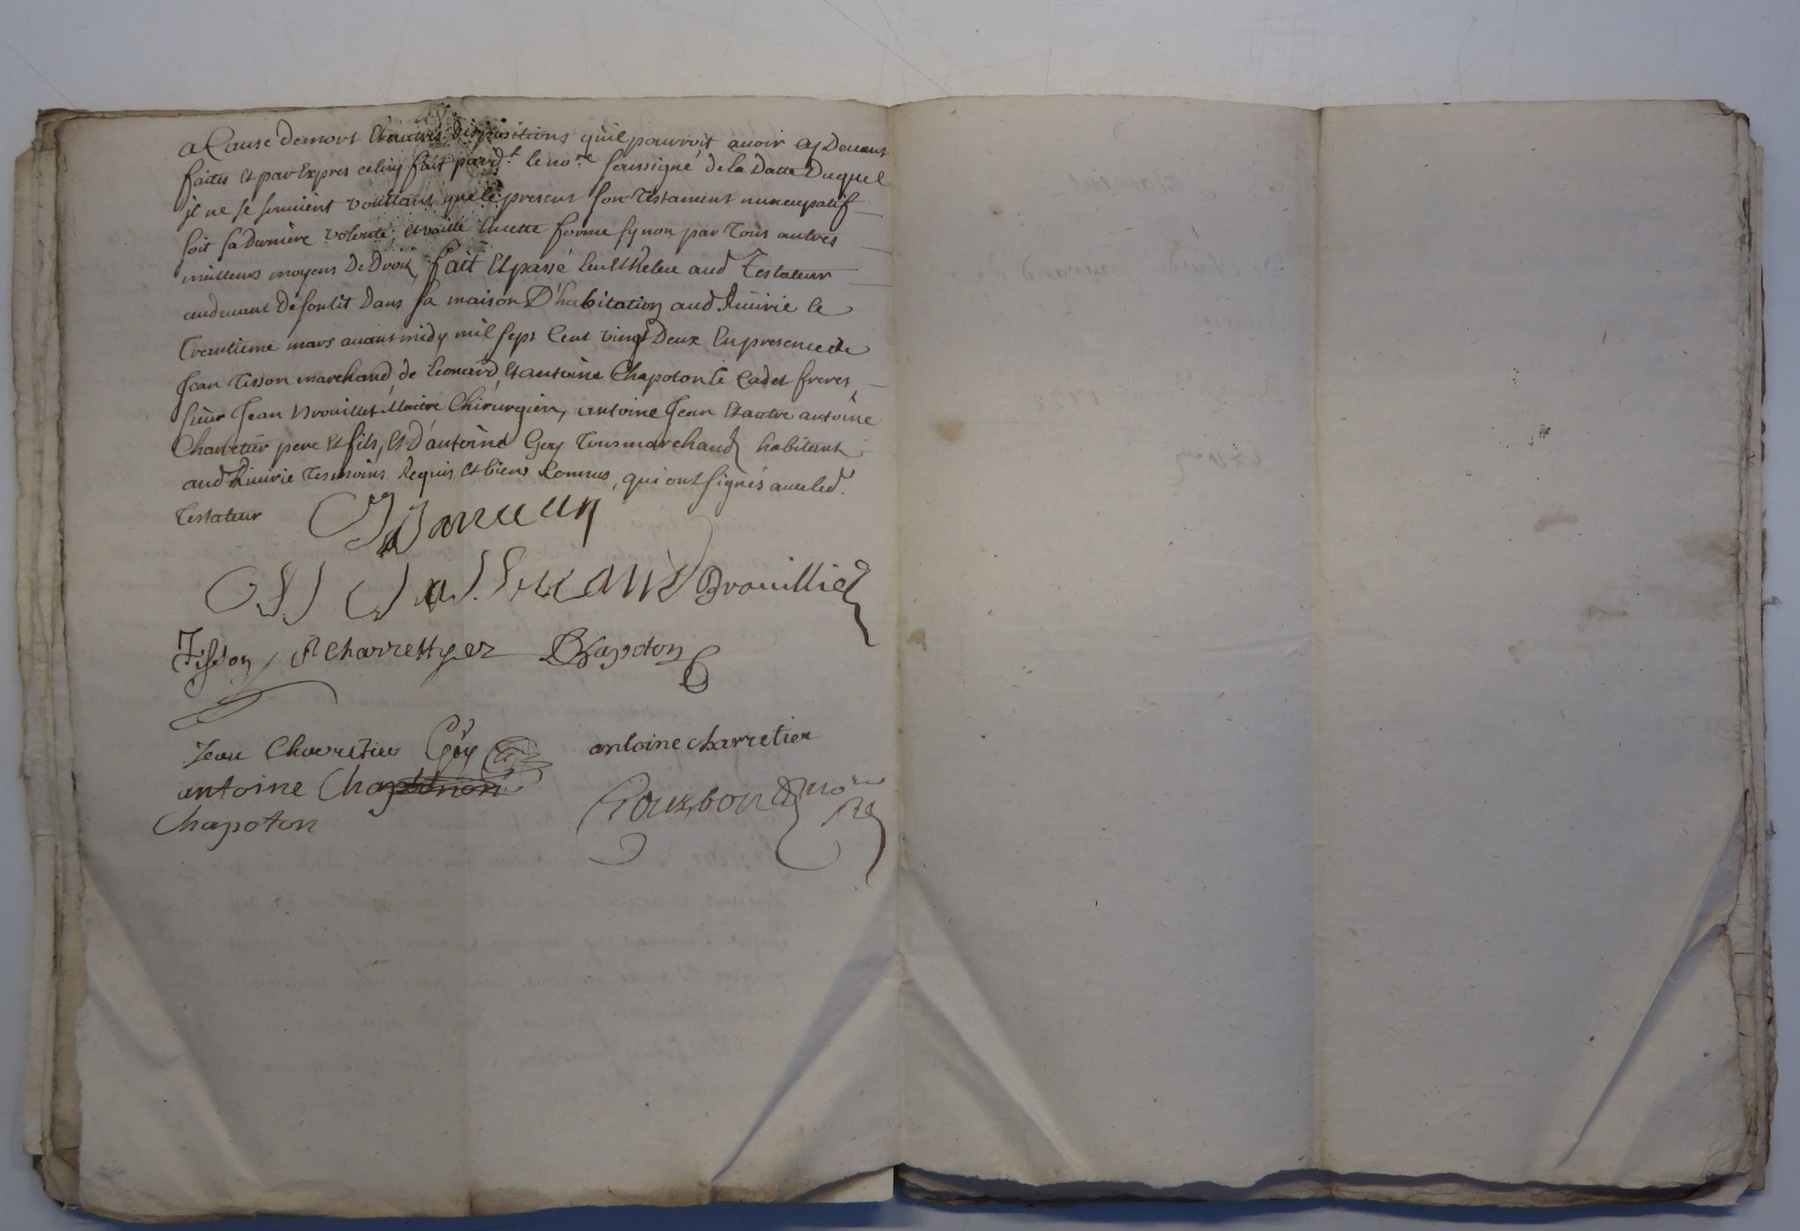 a Cause de mort et autres dispositions qu'il pourroit avoir cy Devant
faites et par Expres celuy fait pard.t le no.re soussigné de la Datte Duquel
jl ne se souvient voullant que le present son testament nuncupatif
soit sa Derniere volonté, et vaille en cette forme synon par Tous autres
meilleurs moyens De Droit, fait Et passé aud Testateur
audevant de son lit Dans sa maison D'habitation aud Riuirie le
Trentieme mars avant midy mil sept Cent vingt Deux En presence de
Jean Tisson marchand de Leonard, et antoine Chapoton le Cadet freres
sieur Jean Brouillet Maitre Chirurgien, antoine Jean Et autre antoine
Charretier pere Et fils, Et d'antoine Goy Tous marchands habitant
aud Riuirie Tesmoins Requis et bien Connus, qui ont signés avec led.
Testateur
Brouillie
Tisson Charrettyer Chapoton
Jean Charretier Goy antoine charretier
antoine
Chapoton
Gourbon no.re